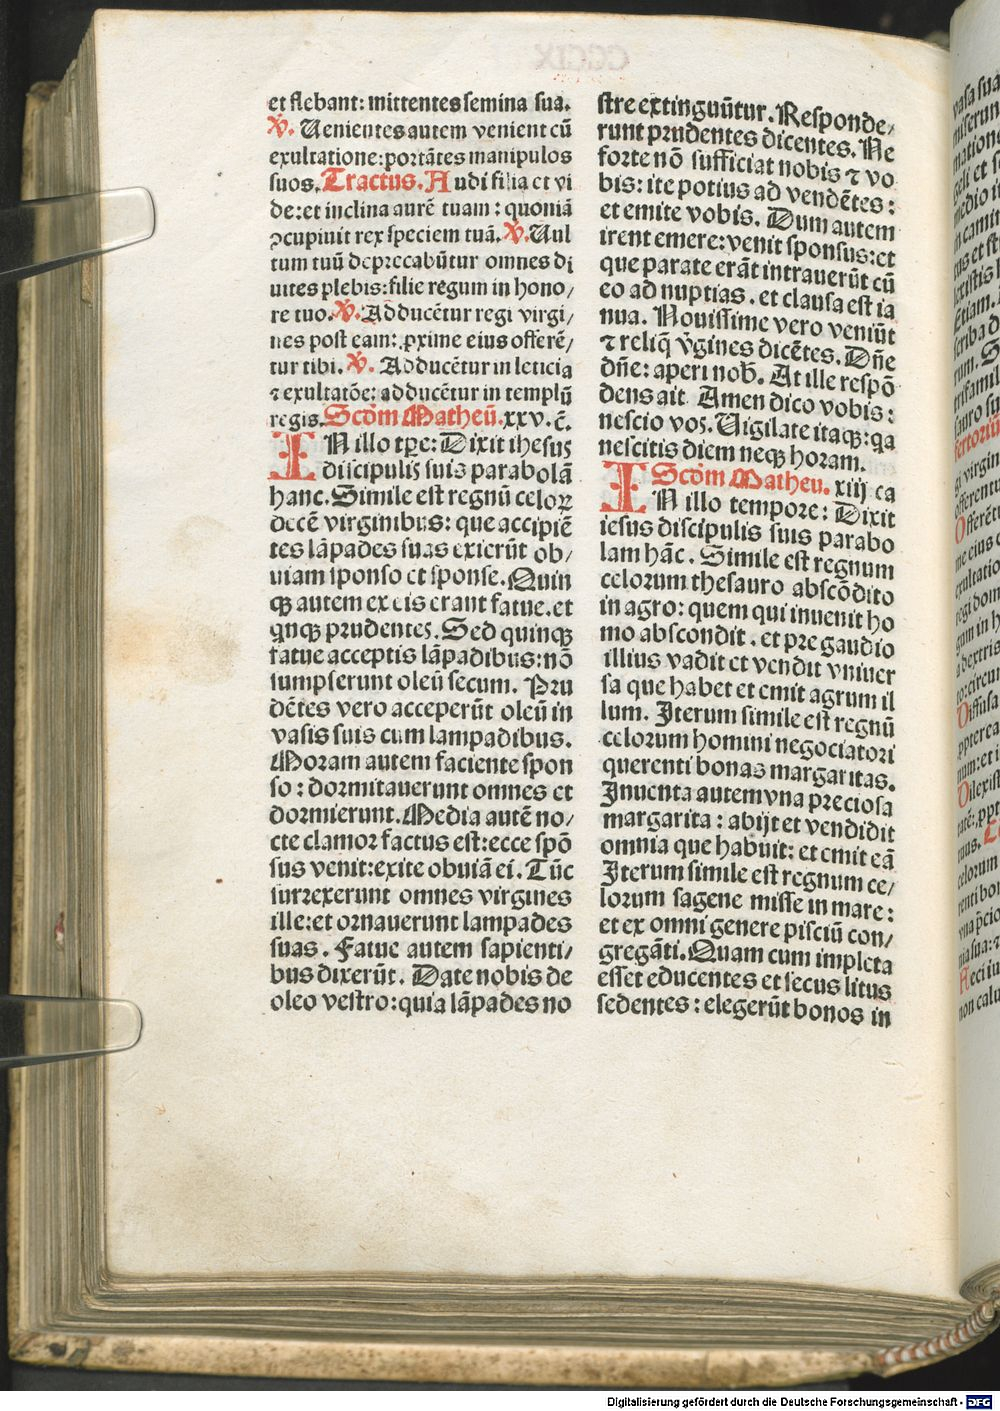 et flebant: mittentes semina sua.
℣. Uenientes autem venient cū
exultatione: portātes manipulos
suos. Tractus. Audi filia et vi
de: et inclina aurē tuam: quoniā
ꝯcupiuit rex speciem tuā. ℣. Uul
tum tuū deprecabūtur omnes di
uites plebis: filie regum in hono/
re tuo. ℣. Adducētur regi virgi/
nes post eam: ꝓxime eius offerē/
tur tibi. ℣. Adducētur in leticia
⁊ exultatōe: adducētur in templū
regis. Scdm̄ Matheū. xxv. c̄.
IN illo tꝑe: Dixit ihesus
discipulis suis parabolā
hanc. Simile est regnū celoꝝ
decē virginibus: que accipiē
tes lāpades suas exierūt ob/
uiam sponso et sponse. Quin
qꝫ autem ex eis erant fatue. et
qͥnqꝫ prudentes. Sed quinqꝫ
fatue acceptis lāpadibus: nō
sumpserunt oleū secum. Pru
dētes vero acceperūt oleū in
vasis suis cum lampadibus.
Moram autem faciente spon
so: dormitauerunt omnes et
dormierunt. Media autē no/
cte clamor factus est: ecce spō
sus venit: exite obuiā ei. Tūc
surrexerunt omnes virgines
ille: et ornauerunt lampades
suas. Fatue autem sapienti/
bus dixerūt. Date nobis de
oleo vestro: quia lāpades no
stre extinguūtur. Responde/
runt prudentes dicentes. Ne
forte nō sufficiat nobis ⁊ vo
bis: ite potius ad vendētes:
et emite vobis. Dum autem
irent emere: venit sponsus: et
que parate erāt intrauerūt cū
eo ad nuptias. et clausa est ia
nua. Nouissime vero veniūt
⁊ reliq̄ v̄gines dicētes. Dn̄e
dn̄e: aperi nob̄. At ille respō
dens ait Amen dico vobis:
nescio vos. Uigilate itaqꝫ: qa
nescitis diem neqꝫ horam.
Scdm̄ Matheu. xiij ca
IN illo tempore: Dixit
iesus discipulis suis parabo
lam hāc. Simile est regnum
celorum thesauro abscōdito
in agro: quem qui inuenit ho
mo abscondit. et pre gaudio
illius vadit et vendit vniuer
sa que habet et emit agrum il
lum. Iterum simile est regnū
celorum homini negociatori
querenti bonas margaritas.
Inuenta autem vna preciosa
margarita: abijt et vendidit
omnia que habuit: et emit eā
Iterum simile est regnum ce/
lorum sagene misse in mare:
et ex omni genere pisciū con/
gregāti. Quam cum impleta
esset educentes et secus litus
sedentes: elegerūt bonos in
Digitalisierung gefördert durch die Deutsche Forschungsgemeinschaft - DFG